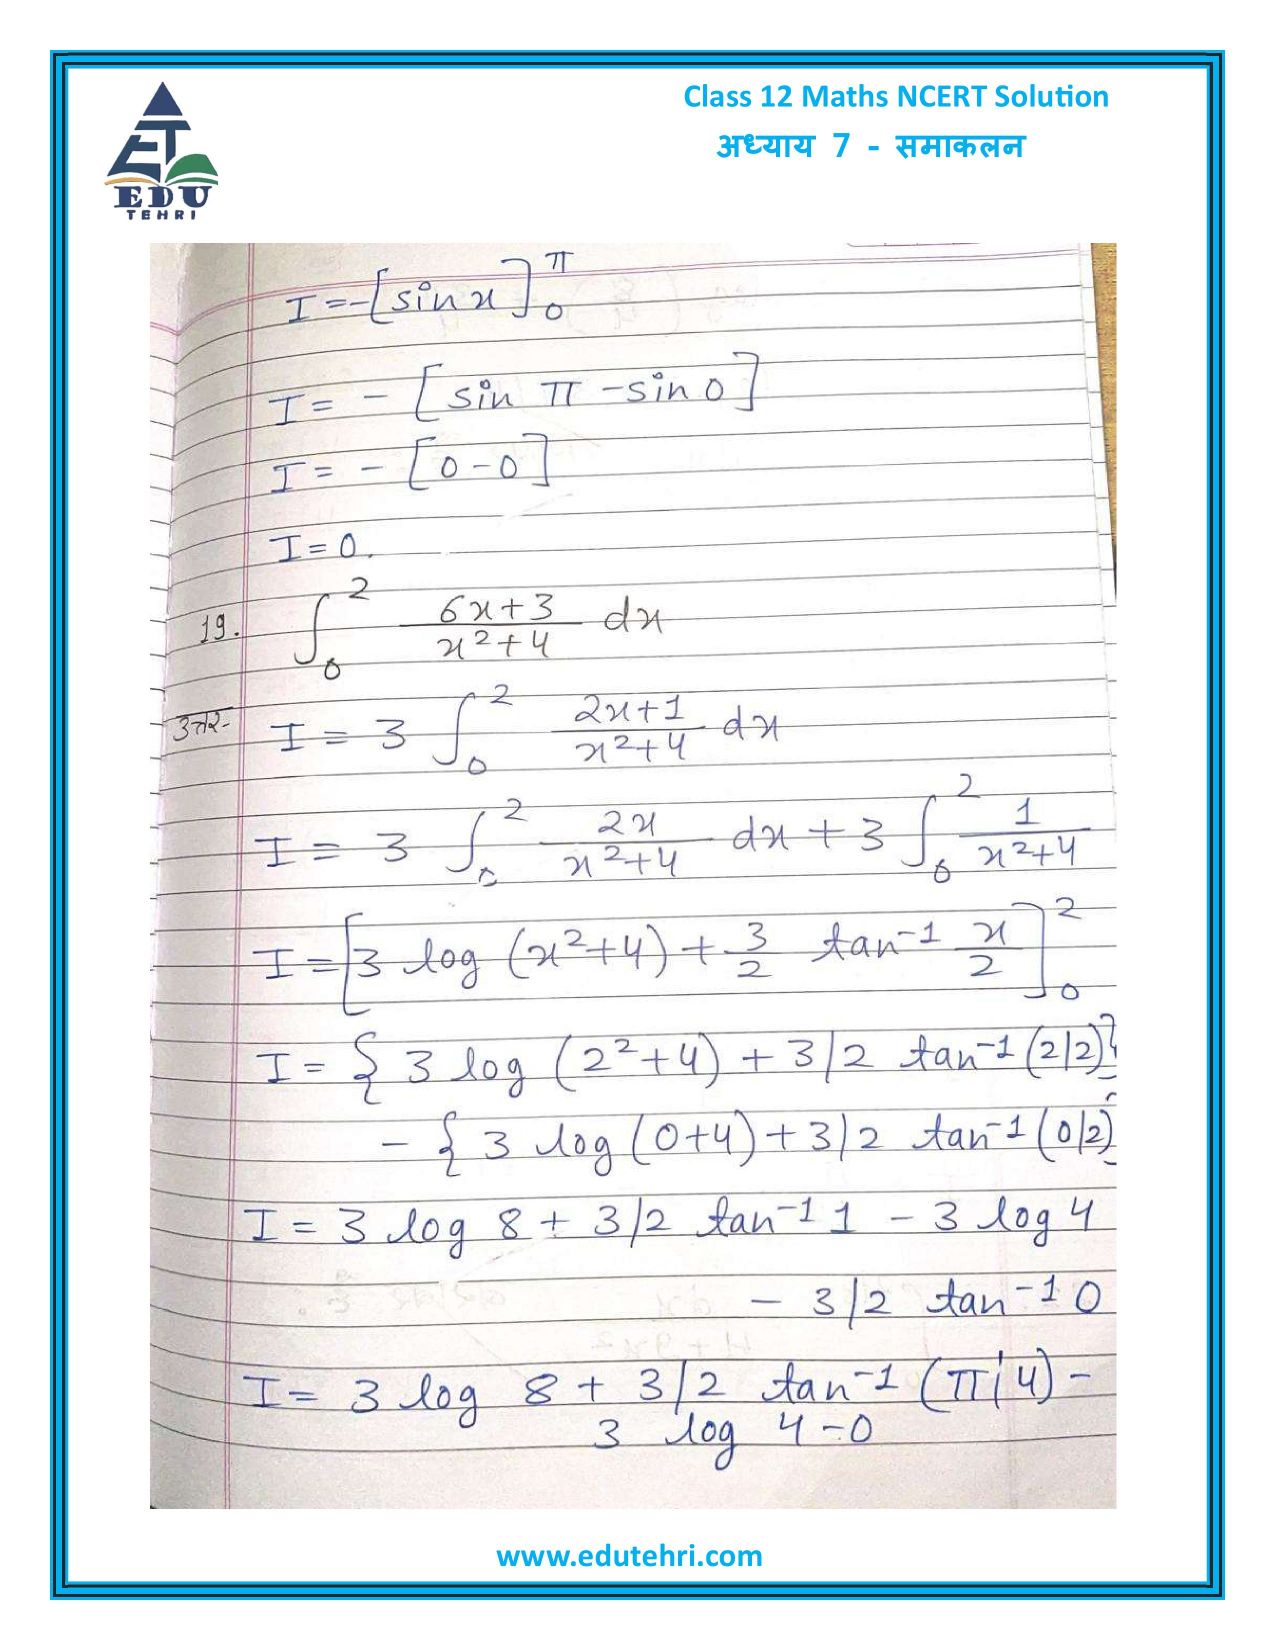 EDU
TEHRI
Class 12 Maths NCERT Solution
अध्याय 7 - समाकलन
I = -[sin x]₀^π
I = - [sin π - sin 0]
I = - [0 - 0]
I = 0.
19. ∫₀² (6x+3)/(x²+4) dx
उत्तर- I = 3 ∫₀² (2x+1)/(x²+4) dx
I = 3 ∫₀² 2x/(x²+4) dx + 3 ∫₀² 1/(x²+4)
I = [3 log (x²+4) + 3/2 tan⁻¹ x/2]₀²
I = { 3 log (2²+4) + 3/2 tan⁻¹ (2/2)}
- { 3 log (0+4) + 3/2 tan⁻¹ (0/2)
I = 3 log 8 + 3/2 tan⁻¹ 1 - 3 log 4
- 3/2 tan⁻¹ 0
I = 3 log 8 + 3/2 tan⁻¹ (π/4) -
3 log 4 - 0
www.edutehri.com